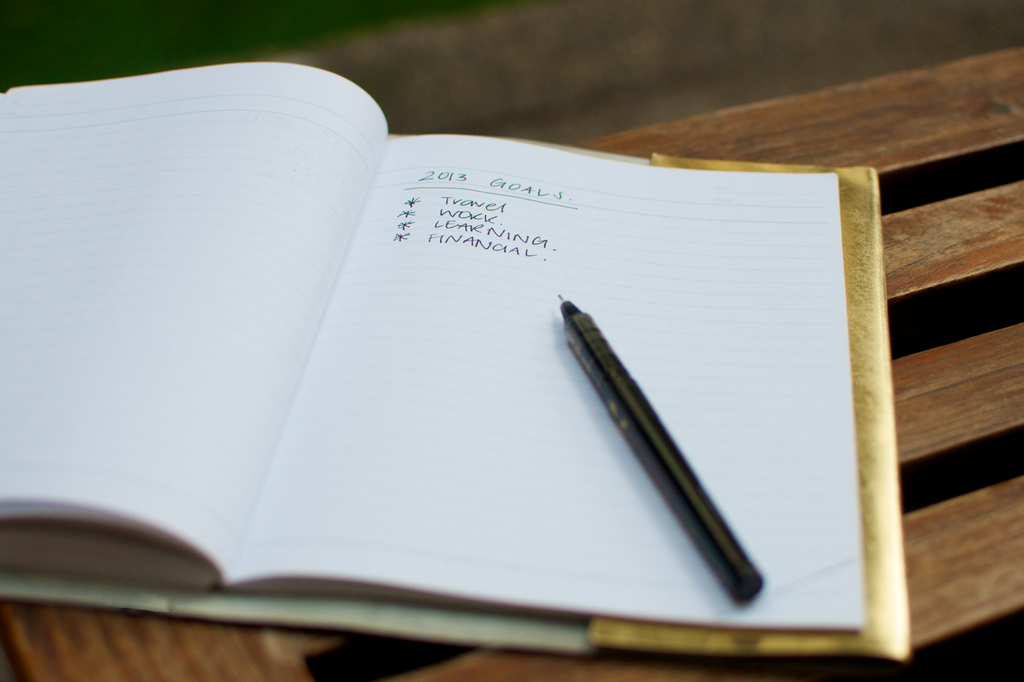 2013 GOALS.
* Travel
* WORK.
* LEARNING.
* FINANCIAL.